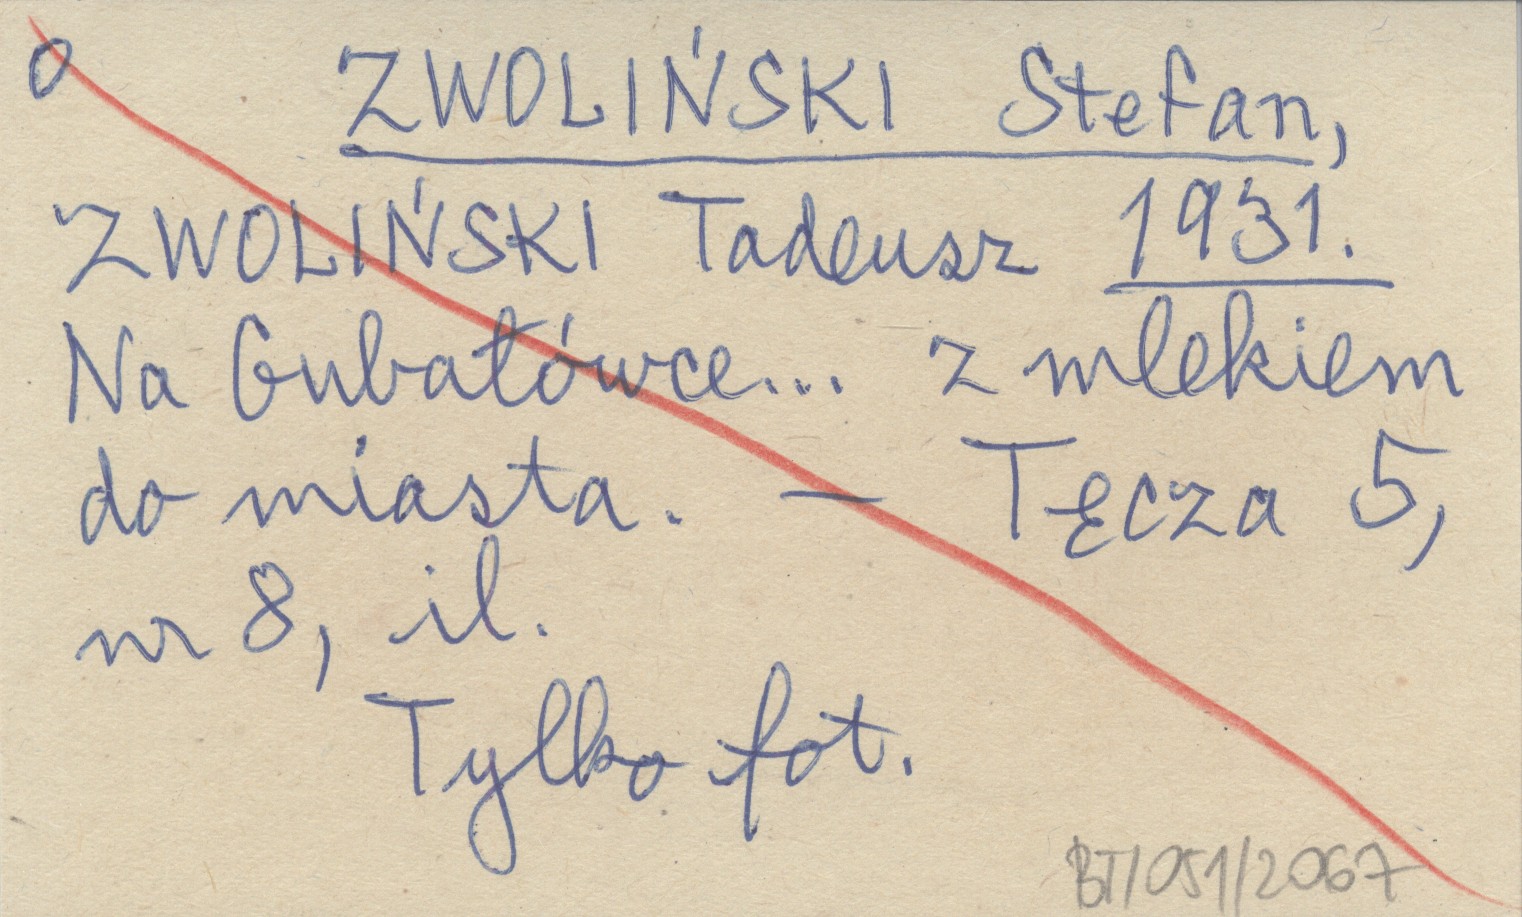 0 ZWOLIŃSKI Stefan,
ZWOLIŃSKI Tadeusz 1931.
Na Gubałówce... z mlekiem
do miasta. — Tęcza 5,
nr 8, il.
Tylko fot.
BT/051/2067